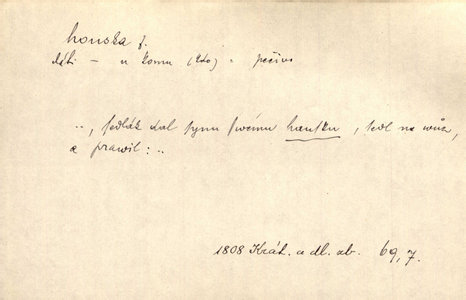 houska f.
dáti – u komu (kdo) = pečivo
..., sedlák dal synu swému hausku, sedl na wůz,
a prawil: ..
1808 Krát. a dl. ab. 69,7.